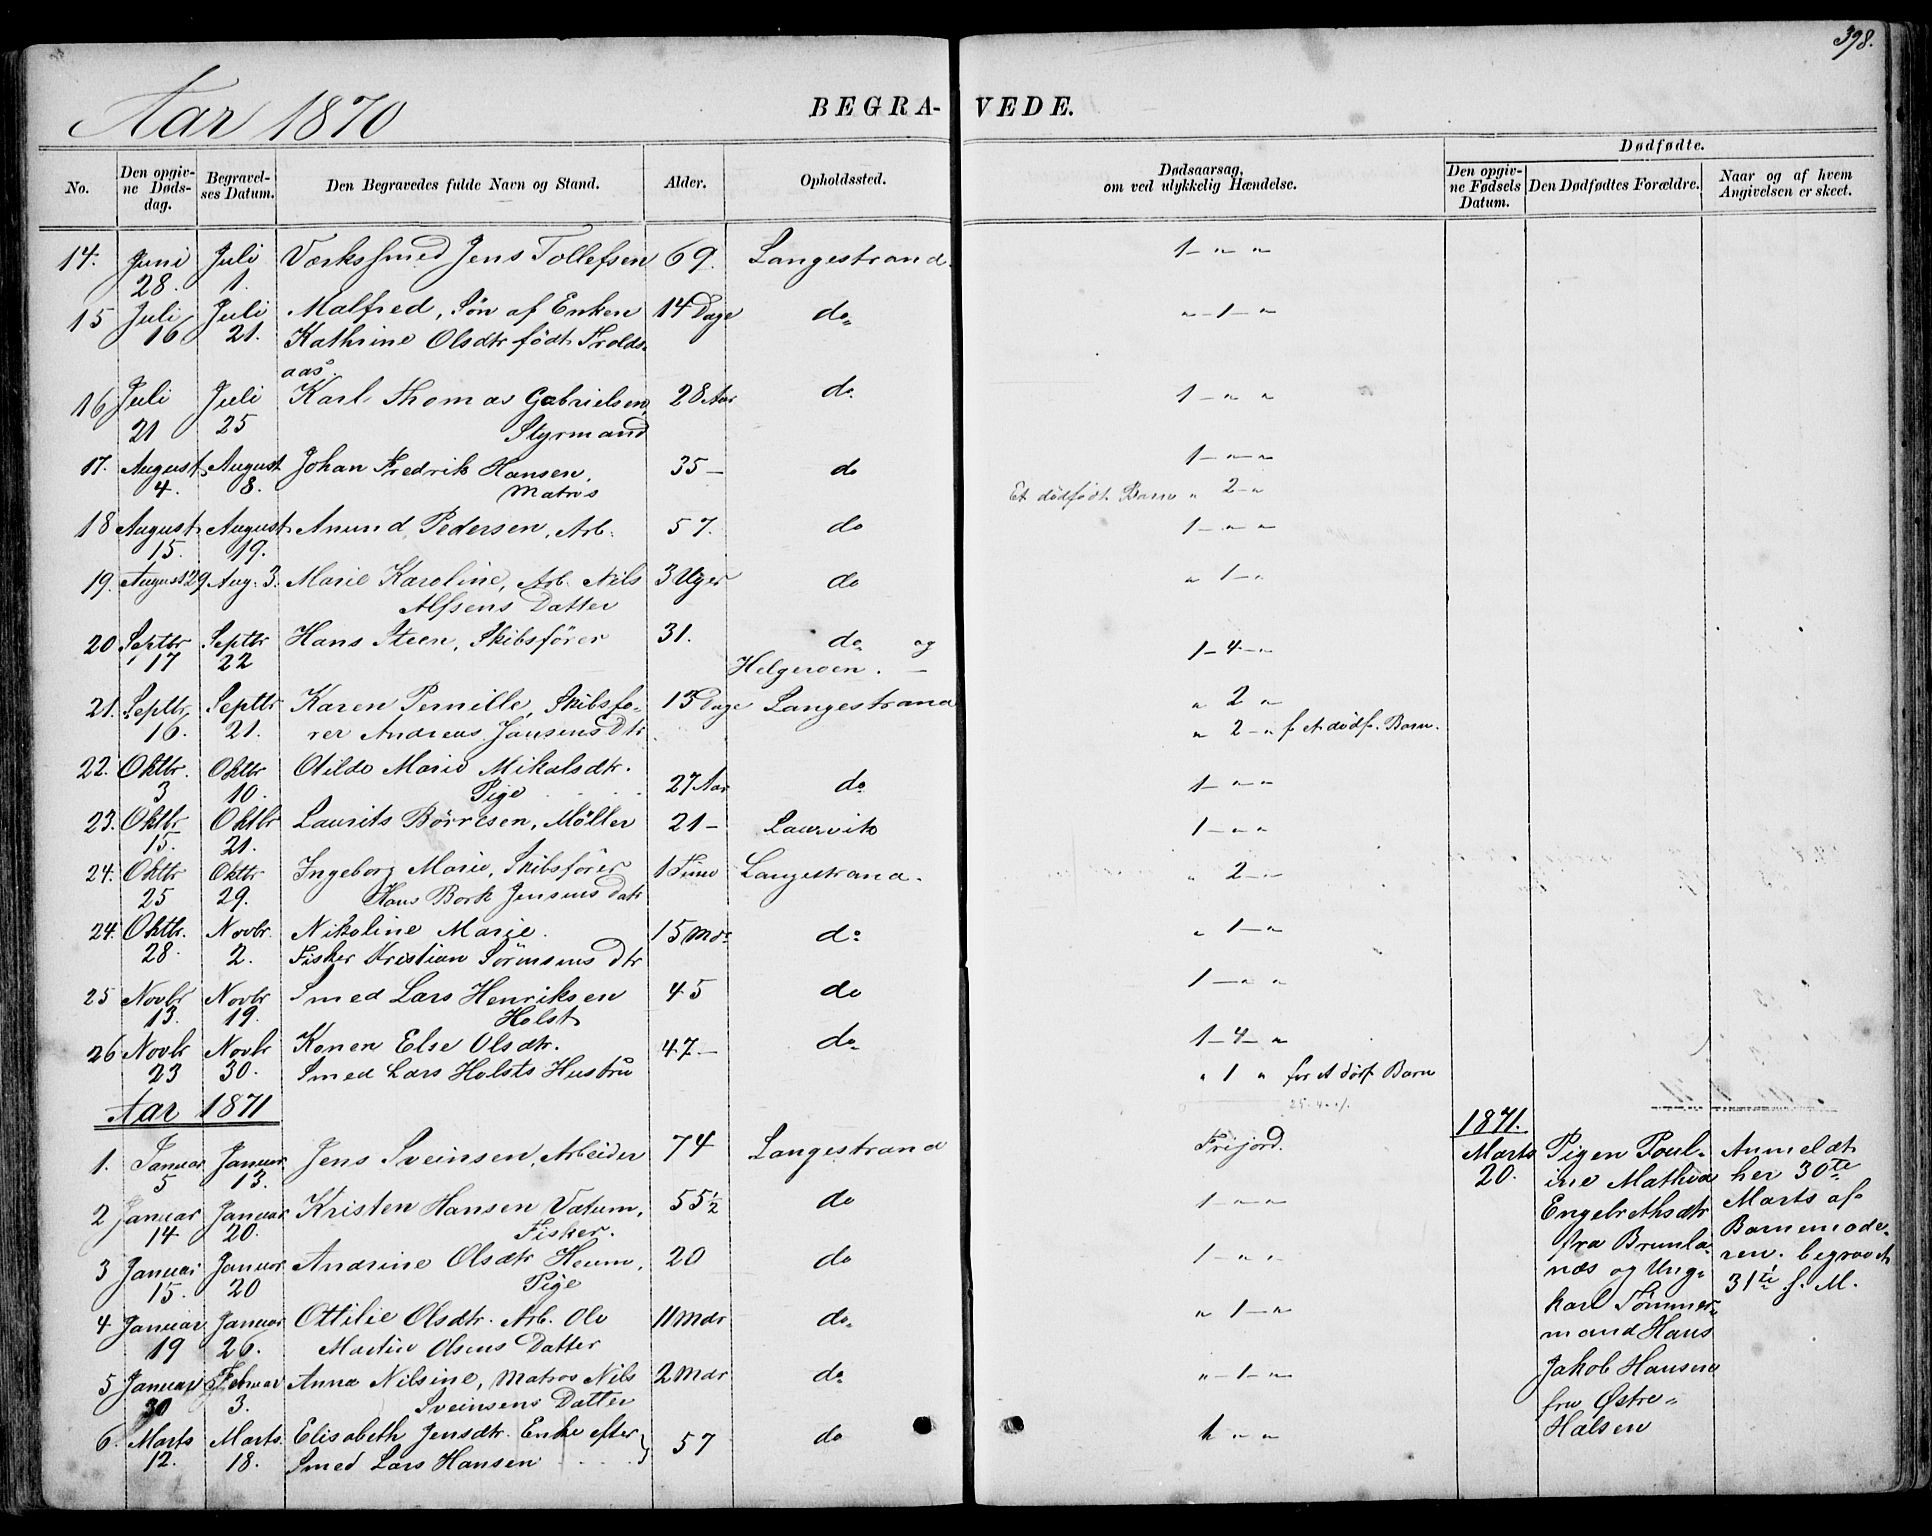 398.
Aar 1870
BEGRA- VEDE.
No.
Den opgiv-
ne Døds-
dag.
Begravel-
ses Datum.
Den Begravedes fulde Navn og Stand.
Alder.
Opholdssted.
Dødsaarsag,
om ved ulykkelig Hændelse.
Dødfødte.
Den opgiv-
ne Fødsels
Datum.
Den Dødfødtes Forældre.
Naar og af hvem
Angivelsen er skeet.
14. Juni Juli Værkssmed Jens Tollefsen 69. Langestrand. 1 - " "
28. 1.
15 Juli Juli Malfred, Søn af Enken 14 Dage do " - 1 - "
16 21. Kathrine Olsdtr født Trolds-
aas.
16 Juli Juli Karl Thomas Gabrielsen, 28 Aar do. 1 - " "
21 25 Styrmand
17. August August Johan Fredrik Hansen, 35 - do 1 - " - "
4. 8. Matros Et dødfødt Barn " 2 - "
18 August August Anund Pedersen, Arb. 57. do 1 - " "
15. 19.
19. August 29 Aug. 3. Marie Karoline, Arb. Nils 3 Uger do " 1 - "
Alfsens Datter
20 Septbr Septbr Hans Steen, Skibsfører 31. do og 1 - 4 - "
17 22 Helgeroen. -
21. Septbr Septbr Karen Pernille, Skibsfø- 13 Dage Langestrand " 2 "
16. 21. rer Andreas Jansens Dtr " 2 - " f. et dødf. Barn.
22. Oktbr. Oktbr Otilde Marie Mikalsdtr.
3 10. Pige 27 Aar do 1 - " "
23. Oktbr Oktbr Laurits Børresen, Møller 21 - Laurvik 1 - " "
15. 21.
24. Oktbr Oktbr Ingeborg Marie, Skibsfører 1 Time Langestrand. " 2 - "
25 29. Hans Bork Jensens Datr
24. Oktbr. Novbr. Nikoline Marie. 15 Mdr do " 1 - "
28. 2. Fisker Kristian Sørensens Dtr
25 Novbr Novbr Smed Lars Henriksen 45 do 1 - " "
13. 19. Holst
26 Novbr Novbr Konen Else Olsdtr. 47 - do 1 - 4 - "
23 30. Smed Lars Holsts Hustru " 1 " for et dødf Barn
Aar 1871
1. Januar Januar Jens Sveinsen, Arbeider 74 Langestrand Frijord.
5 13.
2 Januar Januar Kristen Hansen Vatum, 55 1/2 do 1 - " "
14 20. Fisker.
3 Januar Januar Andrine Olsdtr Heum, 20 do 1 - " "
15. 20 Pige
4 Januar Januar Ottilie Olsdtr. Arb. Ole 11 Mdr do " 1 - "
19 26. Martin Olsens Datter
5 Januar Februar Anna Nilsine, Matros Nils 2 Mdr do " - 1 - "
30 3. Sveinsens Datter
6. Marts Marts. Elisabeth Jensdtr. Enke efter 57 do 1 " "
12. 18. Smed Lars Hansen
1871.
Marts
20.
Pigen Poul-
ine Mathea
Engebrethsdtr
fra Brunla-
næs og Ung-
karl Tømmer-
mand Hans
Jakob Hansen
fra Østre-
Halsen
Anmeldt
her 30te
Marts af
Barnemode-
ren. begravet
31te s. M.